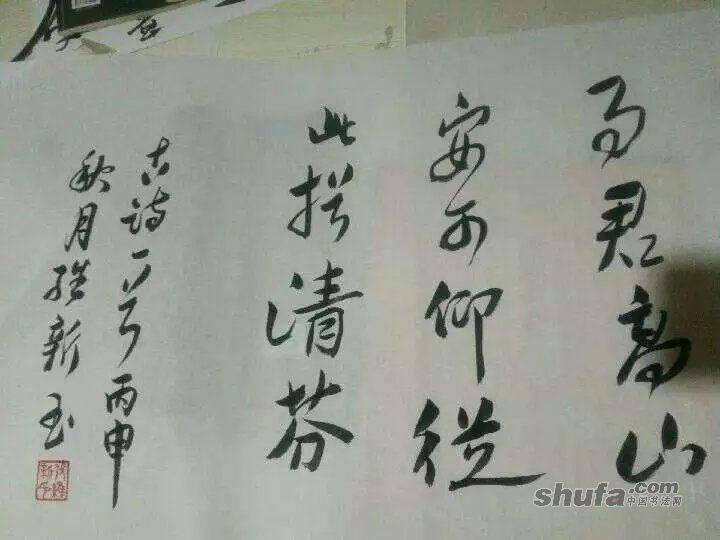 事君高山
安可仰徒
此揖清芬
古詩一首丙申
秋月新书
shufa.com
中国书法网